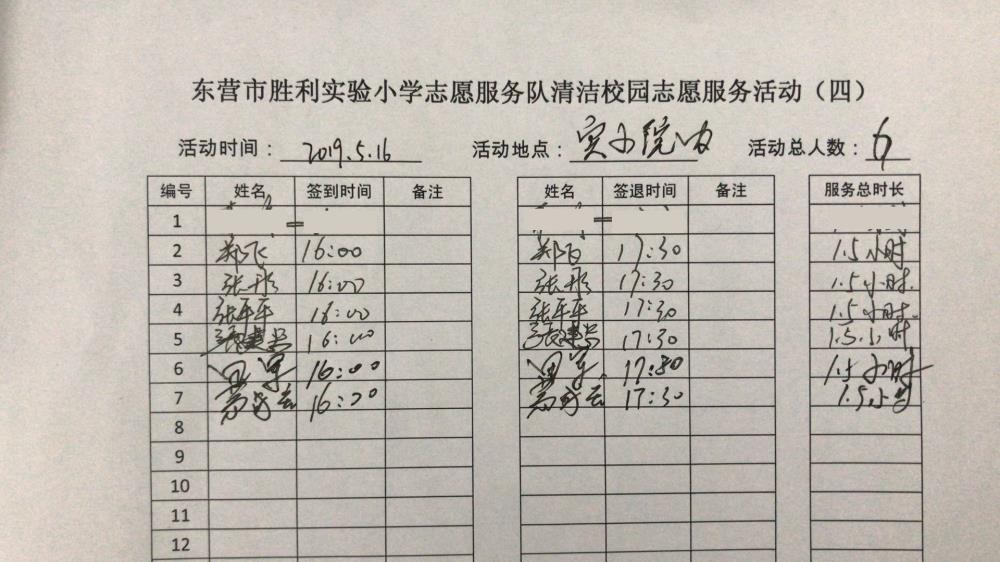 东营市胜利实验小学志愿服务队清洁校园志愿服务活动（四）
活动时间： 2019.5.16 活动地点： 实小院内 活动总人数： 6
编号 姓名 签到时间 备注 姓名 签退时间 备注 服务总时长
1
2 郑飞 16:00 郑飞 17:30 1.5小时
3 张彤 16:00 张彤 17:30 1.5小时.
4 张军军 16:00 张军军 17:30 1.5小时.
5 16:00 17:30 1.5小时
6 16:00 17:30 1.5小时
7 16:20 17:30 1.5小时
8
9
10
11
12